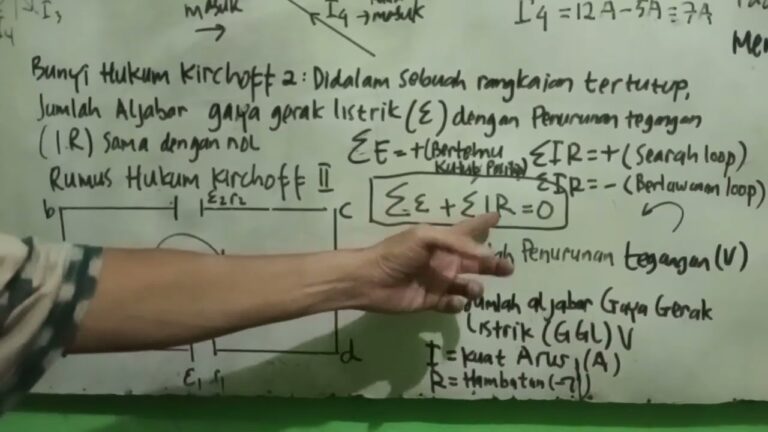 masuk
I4 → masuk
I4 = 12A - 5A = 7A
Bunyi Hukum Kirchoff 2 : Didalam sebuah rangkaian tertutup,
Jumlah Aljabar gaya gerak listrik (Ɛ) dengan Penurunan tegangan
(I.R) Sama dengan nol
ΣE = + (Bertemu Kutub Positip)
ΣIR = + (Searah loop)
ΣIR = - (Berlawanan loop)
Rumus Hukum Kirchoff II
ΣƐ + ΣIR = 0
b
Ɛ2 r2
c
Penurunan tegangan (V)
Jumlah aljabar Gaya Gerak
Listrik (GGL) V
I = Kuat Arus (A)
R = Hambatan (Ω)
d
Ɛ1 r1